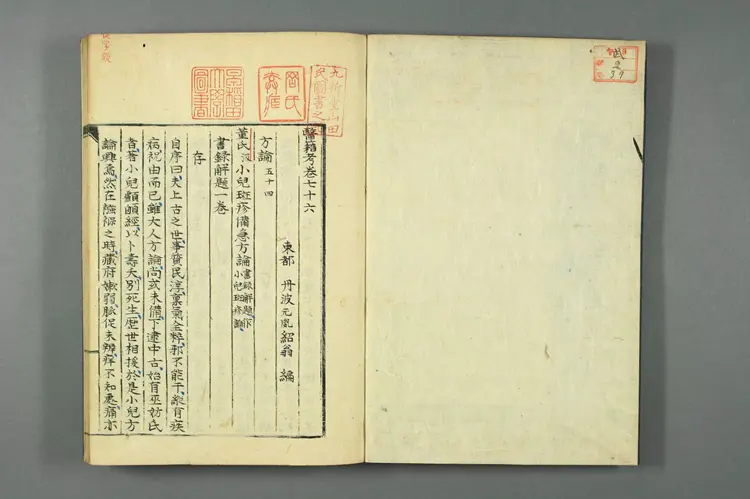 2
39
九折堂山田
氏圖書之
早稲田大學圖書
醫籍考卷七十六
東都 丹波元胤紹翁 編
方論 五十四
董氏汲小兒斑疹備急方論 書錄解題作小兒斑疹論
書錄解題一卷
存
自序曰夫上古之世事質民淳稟氣全粹邪不能干縱有疾
病祝由而已雖大人方論尚或未備下逮中古始有巫妨氏
者著小兒顱顖經以卜壽夭別死生歷世相授於是小兒方
論興焉然在襁褓之時藏府嫩弱脈促未辨痒不知處痛亦